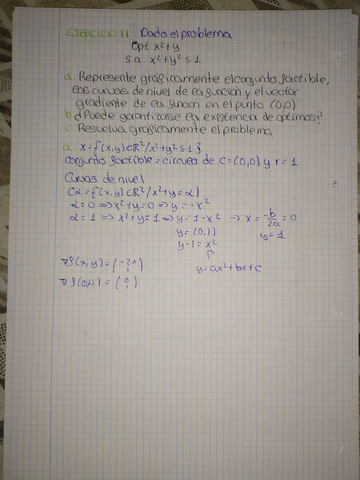 EJERCICIO 11: Dado el problema
Opt x²+y
S.a x²+y² ≤ 1
a. Represente gráficamente el conjunto factible,
las curvas de nivel de la función y el vector
gradiente de la función en el punto (0,0)
b. ¿Puede garantizarse la existencia de óptimos?
c. Resuelva gráficamente el problema
a. X = {(x,y) ∈ ℝ² / x²+y² ≤ 1}
conjunto factible = círculo de C = (0,0) y r = 1
Curvas de nivel
Cα = {(x,y) ∈ ℝ² / x²+y = α)
α = 0 ⇒ x²+y = 0 ⇒ y = -x²
α = 1 ⇒ x²+y = 1 ⇒ y = 1-x² → x = -b/2a = 0
y = (0,1) y = 1
y-1 = x²
∇f(x,y) = (-2x 1) y = ax²+bx+c
∇f(0,0) = (0 1)